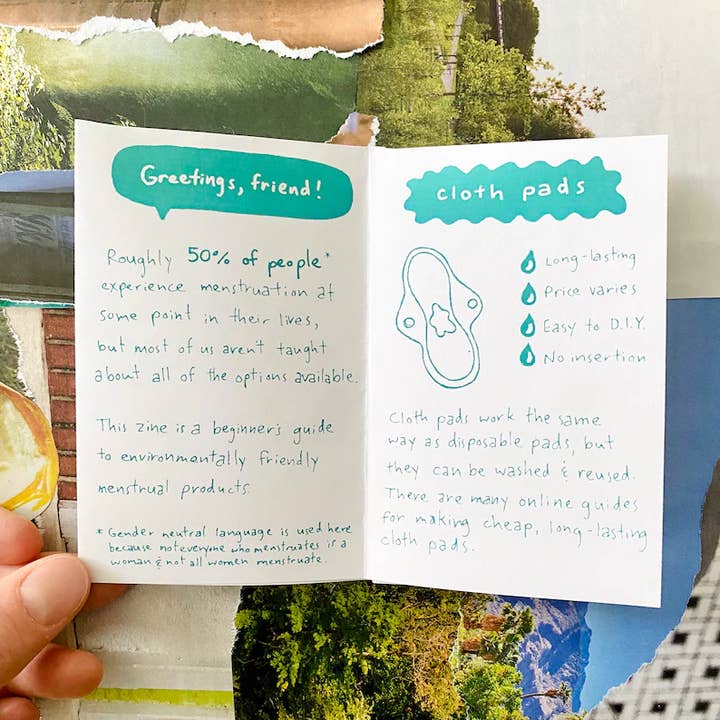 Greetings, friend!
Roughly 50% of people*
experience menstruation at
some point in their lives,
but most of us aren't taught
about all of the options available.
This zine is a beginner's guide
to environmentally friendly
menstrual products.
* Gender neutral language is used here
because not everyone who menstruates is a
woman & not all women menstruate.
cloth pads
Long-lasting
Price varies
Easy to D.I.Y.
No insertion
Cloth pads work the same
way as disposable pads, but
they can be washed & reused.
There are many online guides
for making cheap, long-lasting
cloth pads.